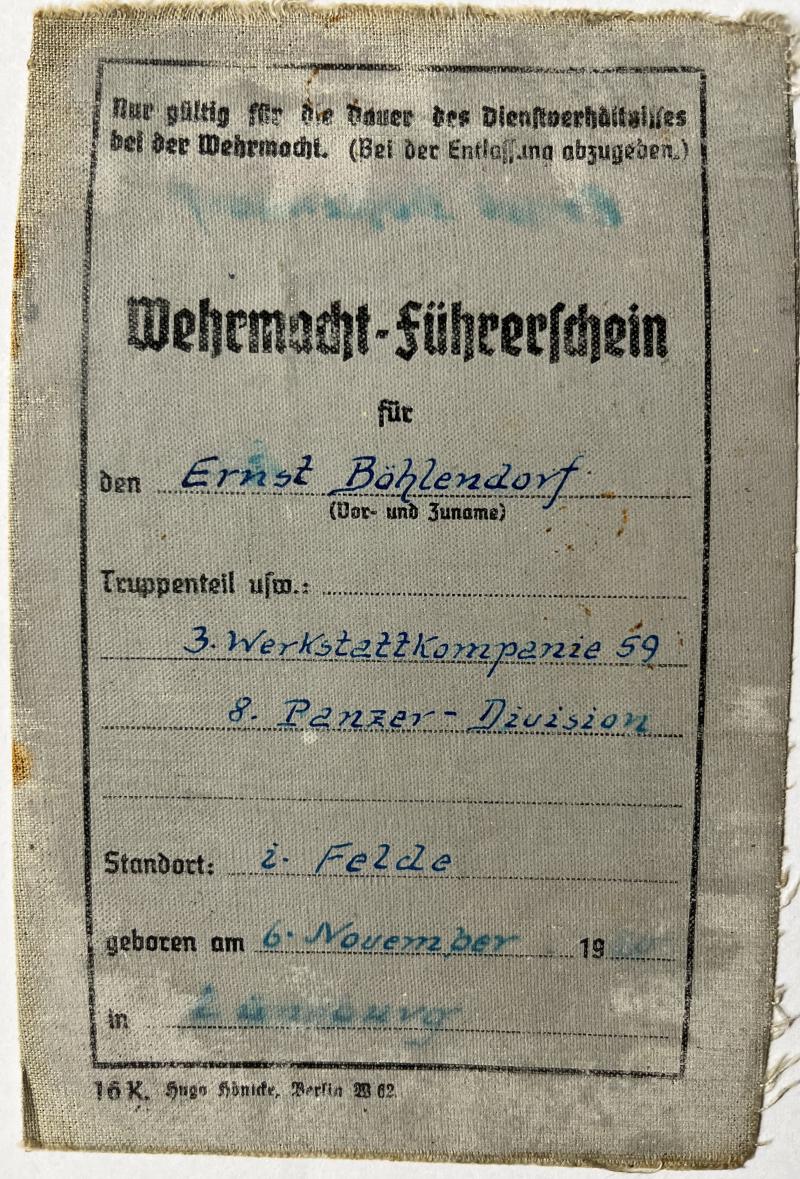 Nur gültig für die Dauer des Dienstverhältnisses
bei der Wehrmacht. (Bei der Entlassung abzugeben.)
Wehrmacht-Führerschein
für
den Ernst Böhlendorf
(Vor- und Zuname)
Truppenteil usw.:
3. Werkstattkompanie 59
8. Panzer-Division
Standort: i. Felde
geboren am 6. November 19
in
16 K. Hugo Hönicke, Berlin W 62.